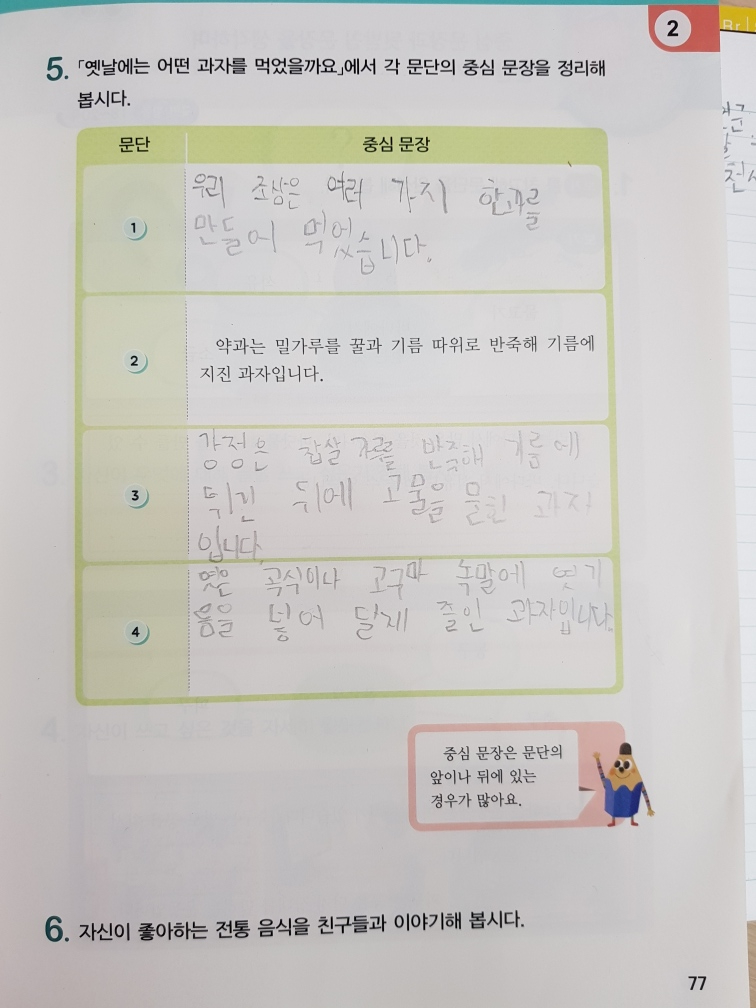 2
5. 「옛날에는 어떤 과자를 먹었을까요」에서 각 문단의 중심 문장을 정리해
봅시다.
문단 중심 문장
1 우리 조상은 여러 가지 한과를
만들어 먹었습니다.
2 약과는 밀가루를 꿀과 기름 따위로 반죽해 기름에
지진 과자입니다.
3 강정은 찹쌀가루를 반죽해 기름에
튀긴 뒤에 고물을 묻힌 과자
입니다.
4 엿은 곡식이나 고구마 녹말에 엿기
름을 넣어 달게 졸인 과자입니다.
중심 문장은 문단의
앞이나 뒤에 있는
경우가 많아요.
6. 자신이 좋아하는 전통 음식을 친구들과 이야기해 봅시다.
77